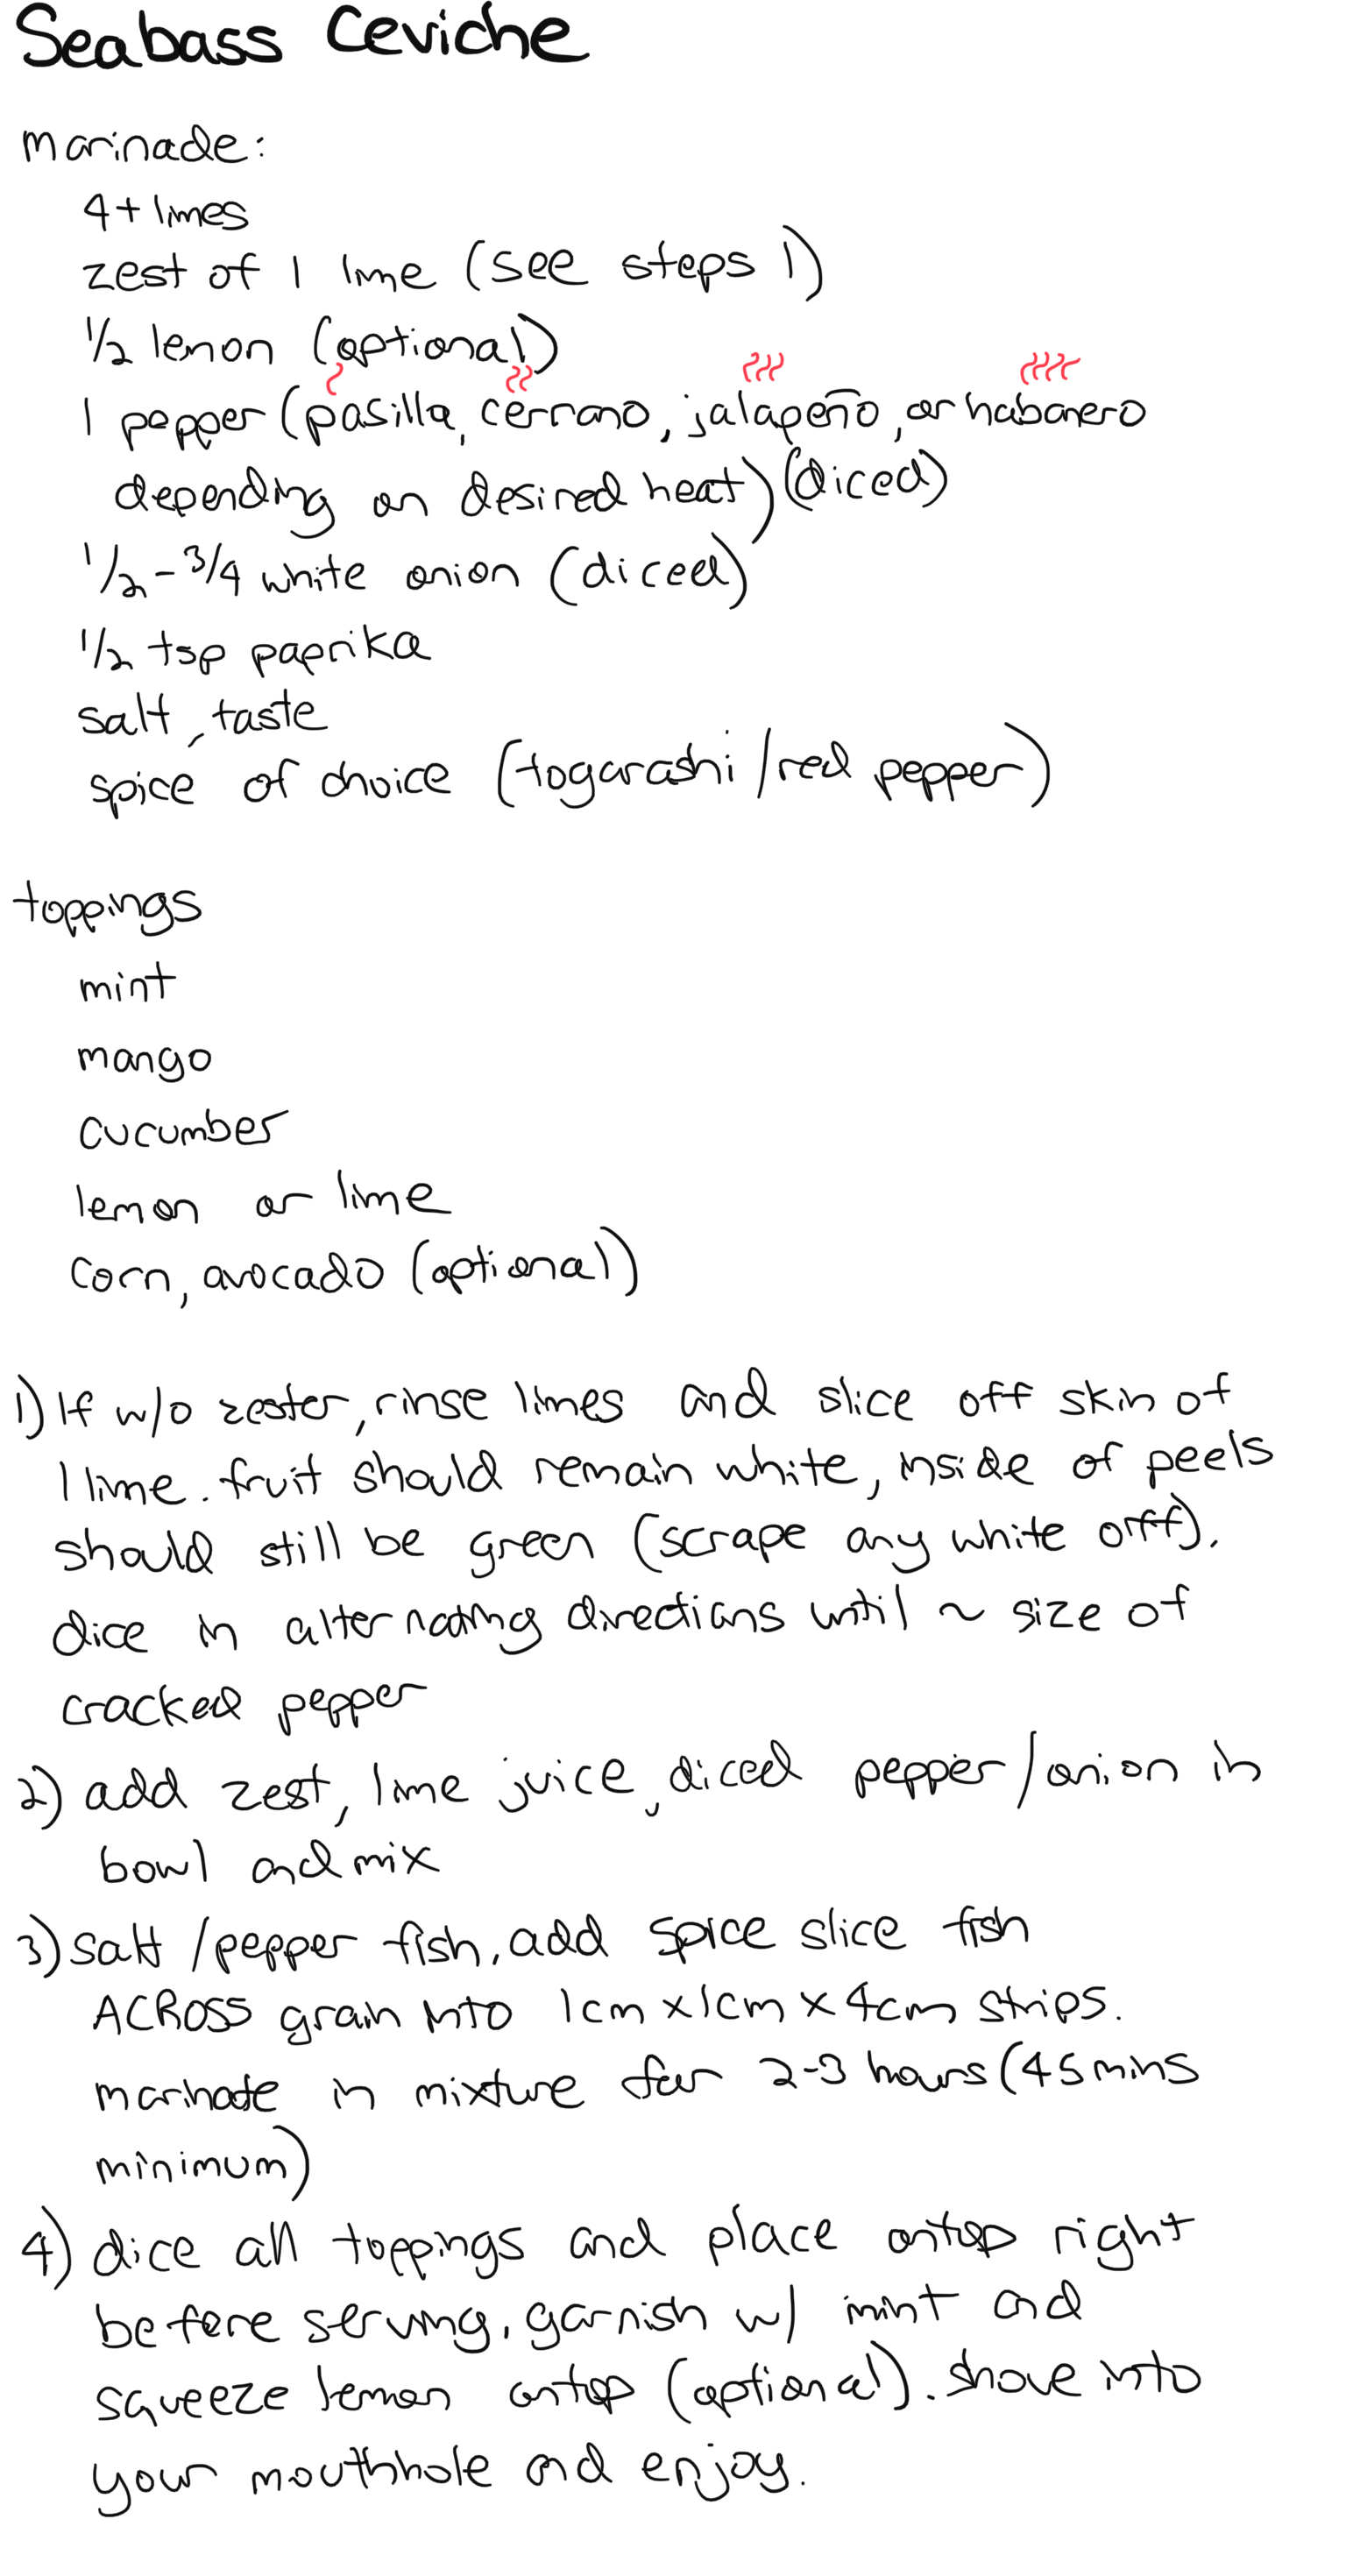 Seabass Ceviche
marinade:
4+ limes
zest of 1 lime (see steps 1)
1/2 lemon (optional)
1 pepper (pasilla, cerrano, jalapeño, or habanero
depending on desired heat) (diced)
1/2 - 3/4 white onion (diced)
1/2 tsp paprika
salt, taste
spice of choice (togarashi/red pepper)
toppings
mint
mango
cucumber
lemon or lime
corn, avocado (optional)
1) If w/o zester, rinse limes and slice off skin of
1 lime. fruit should remain white, inside of peels
should still be green (scrape any white off).
dice in alternating directions until ~ size of
cracked pepper
2) add zest, lime juice, diced pepper/onion in
bowl and mix
3) salt/pepper fish, add spice slice fish
ACROSS grain into 1cm x 1cm x 4cm strips.
marinate in mixture for 2-3 hours (45 mins
minimum)
4) dice all toppings and place ontop right
before serving, garnish w/ mint and
squeeze lemon ontop (optional). shove into
your mouthhole and enjoy.